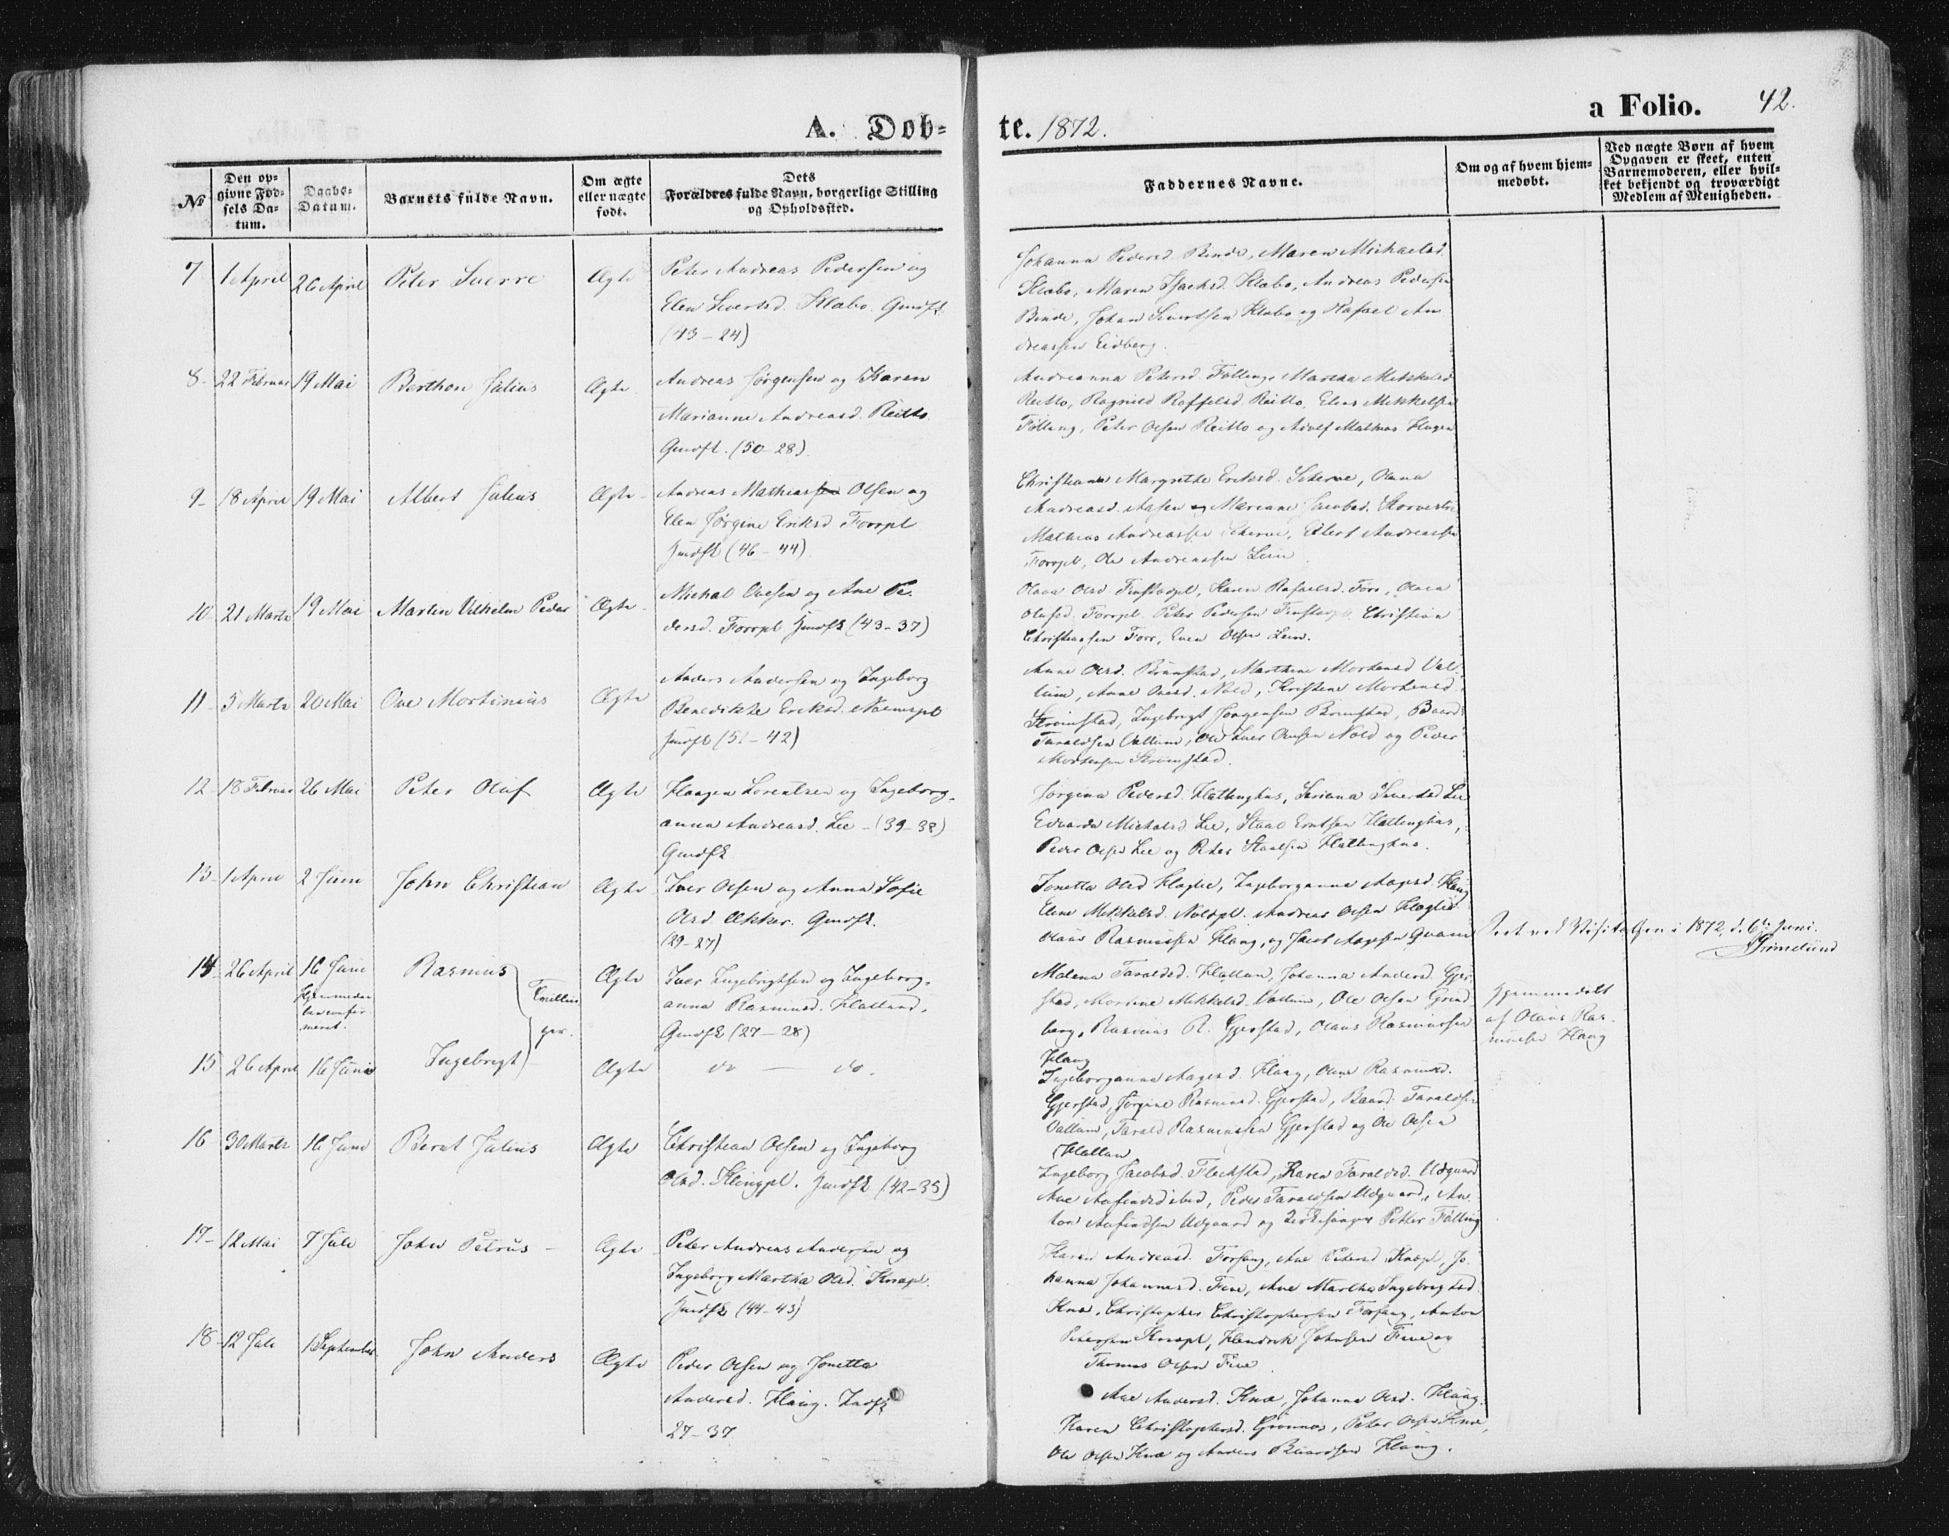 A. Døb=
te. 1872.
a Folio. 42.
No
Den op-
givne Fød-
sels Da-
tum.
Daabs-
Datum.
Barnets fulde Navn.
Om ægte
eller uægte
født.
Dets
Forældres fulde Navn, borgerlige Stilling
og Opholdssted.
Faddernes Navne.
Om og af hvem hjem-
medøbt.
Ved uægte Børn af hvem
Opgaven er skeet, enten
Barnemoderen, eller hvil-
ket bekjendt og troværdigt
Medlem af Menigheden.
7 1 April 26 April Peter Sverre Ægte Peter Andreas Pedersen og
Elen Sivertsd. Klæbo. Gmdsk
(43-24)
Johanna Pedersd. Binde, Maren Michaelsd.
Klæbo, Maren Isachsd. Klæbo, Andreas Pedersen
Binde, Johan Sivertsen Klæbo og Rafael An
dreassen Eidberg.
8 22 Februar 19 Mai Berthon Julius Ægte Andreas Jørgensen og Karen
Marianne Andreasd. Reitlo
Gmdsk. (50-28)
Andreanna Petersd. Følling, Martha Mikkelsd
Reitlo, Ragnild Roffelsd. Reitlo, Elias Mikkelsen
Følling, Peter Olsen Reitlo og Adolf Mathias Hagen
9 18 April 19 Mai Albert Julius Ægte Andreas Mathiassen Olsen og
Elen Jørgine Eriksd. Forrpl
Jmdsk (46-44)
Christianna Margrethe Eriksd.
Andreasd. Aasen og Mariane Jacobsd.
Mathias Andreassen Eilert Andreassen
Forrpl, Ole Andreassen Lein
10 21 Marts 19 Mai Martin Vilhelm Peder Ægte Michal Ovesen og Ane Pe
dersd. Forrpl Jmdsk (43-37)
Olava Olsd Finstadpl, Karen Rafaelsd. Forr, Olava
Olufsd. Forrpl Peter Pedersen Christian
Christiansen Forr, Even Olsen Lein.
11 5 Marts 20 Mai Ove Mortinius Ægte Anders Andersen og Ingeborg
Benedikte Eriksd.
Jmdsk (51-42)
Anne Olsd. Brimstad, Marthine Mortensd Val
lum, Anne Ovesd. Nold, Kristine Mortensd.
Strømstad, Ingebrigt Jørgensen Brimstad, Baard
Taraldsen Vallum, Ole Iver Ovesen Nold og Peder
Mortensen Strømstad.
12 18 Februar 26 Mai Peter Oluf Ægte Haagen Lorentsen og Ingeborg
anna Andreasd. Lee - (39-38)
Gmdsk
Jørgina Pedersd. Hallinghus, Seriana Sivertsd Lee
Edvarda Michalsd Lee, Staal Hallinghus,
Peder Olsen Lee og Peter Staalsen Hallinghus.
13 1 April 2 Juni John Christian Ægte Iver Olsen og Anna Sofie
Olsd Økker. Gmdsk.
(29-27)
Jonetta Olsd Ingeborganna Aagesd. Haug
Eline Mikkelsd. Noldpl. Andreas Olsen
Olaus Rasmussen Haug, og Jacob Aagesen Qvam
Seet ved Visitatsen i 1872, d. 6te Juni.
Grimelund
14 26 April 16 Juni Rasmus Tvillin Ægte Iver Ingebrigtsen og Ingeborg
Hjemmedaa
ben confir
meret.
anna Rasmusd. Hatland.
Gmdsk (27-28)
Malena Taraldsd. Hallan, Johanna Andersd Gjer
stad, Mortine Mikkelsd. Vallum, Ole Olsen Grind
berg, Rasmus R. Gjerstad, Olaus Rasmussen
Haug
Hjemmedøbt
af Olaus Ras
mussen Haug
15 26 April 16 Juni Ingebrigt ger. Ægte do — do.
Ingeborganna Aagesd. Haug, Oline Rasmusd.
Gjerstad, Jørgine Rasmusd. Gjerstad, Baard Taraldsen
Vallum, Tarald Rasmussen Gjerstad og Ole Olsen
Hallan
16 30 Marts 16 Juni Bernt Julius Ægte Christian Olsen og Ingeborg
Olsd. Klingpl. Jmdsk (42-35)
Ingeborg Jacobsd. Fleckstad, Karen Taraldsd. Udgaard
Ane Arfindsd ibid, Peder Taraldsen Udgaard, An
ton Arfindsen Udgaard og Kirkesanger Petter Følling
17 12 Mai 7 Juli John Petrus Ægte Peter Andreas Andersen og
Ingeborg Martha Olsd. Knæpl.
Jmdsk (44-43)
Karen Andreasd. Forsang, Ane Petersd Knæpl, Jo
hanna Johannesd. Five, Ane Martha Ingebrigtsd
Knæ, Christopher Christophersen Forsang, Anton
Petersen Knæpl, Hendrik Johnsen Five og
Thomas Olsen Five
18 12 Juli 1 September John Anders Ægte Peder Olsen og Jonetta
Andersd. Haug. Indsk
27-37
Ane Andersd. Knæ, Johanna Olsd. Haug.
Karen Christophersd. Grønnes, Peter Olsen Knæ,
Ole Olsen Knæ og Anders Baardsen Haug.